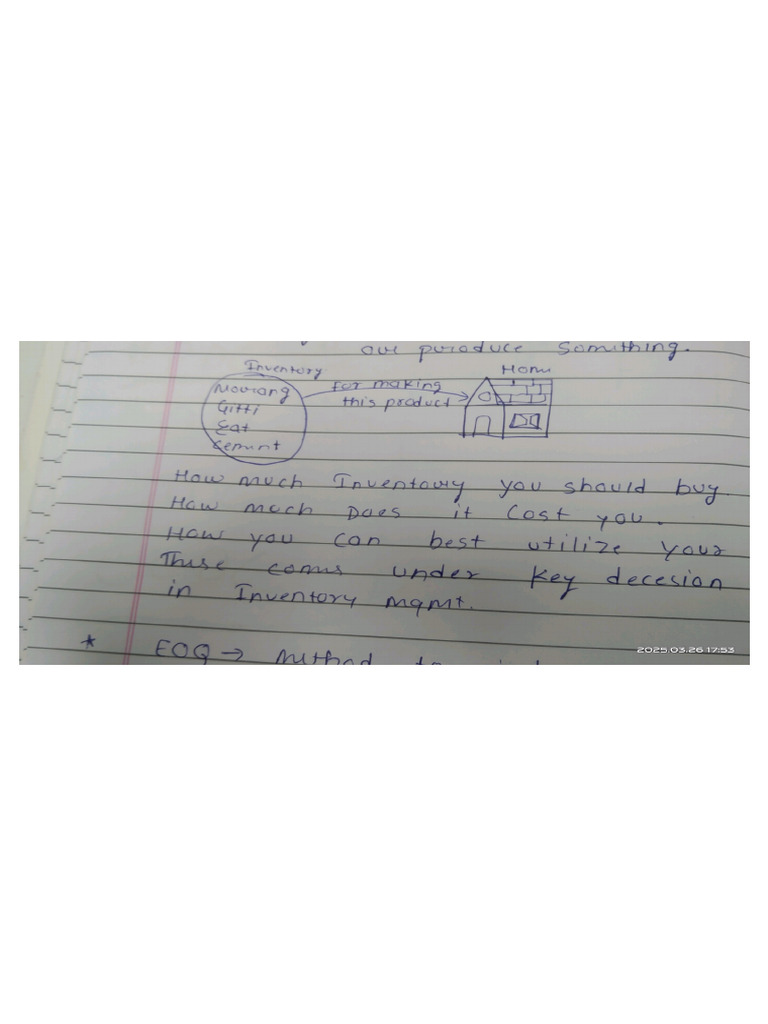 our produce Something.
Inventory
Home
Mourang
Gitti
Eat
Cement
For making
this product
How much Inventory you should buy.
How much Does it Cost you.
How you can best utilize your
These coms under key decesion
in Inventory mgmt.
* EOQ → Method to
2025.03.26 17:53